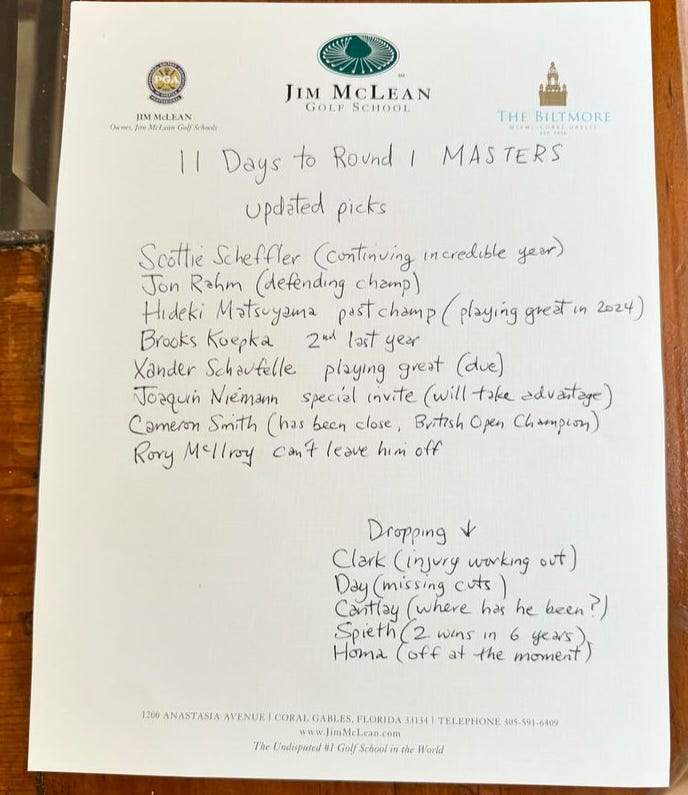 PGA
JIM McLEAN
Owner, Jim McLean Golf Schools
JIM McLEAN
GOLF SCHOOL
SM
THE BILTMORE
MIAMI-CORAL GABLES
EST. 1926
11 Days to Round 1 MASTERS
updated picks
Scottie Scheffler (continuing incredible year)
Jon Rahm (defending champ)
Hideki Matsuyama past champ (playing great in 2024)
Brooks Koepka 2nd last year
Xander Schaufelle playing great (due)
Joaquin Niemann special invite (will take advantage)
Cameron Smith (has been close, British Open Champion)
Rory McIlroy can't leave him off
Dropping ↓
Clark (injury working out)
Day (missing cuts)
Cantlay (where has he been?)
Spieth (2 wins in 6 years)
Homa (off at the moment)
1200 ANASTASIA AVENUE | CORAL GABLES, FLORIDA 33134 | TELEPHONE 305-591-6409
www.JimMcLean.com
The Undisputed #1 Golf School in the World